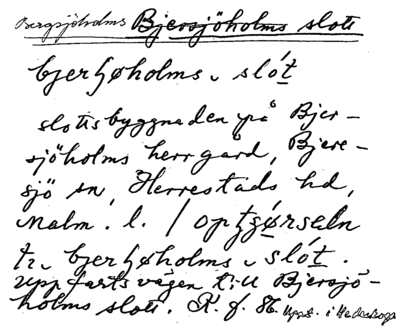 Bergsjöholms Bjersjöholms slott
bjerʃøholms, slót
slottsbyggnaden på Bjer-
sjöholms herrgård, Bjere-
sjö sn, Herrestads hd,
Malm. l. / opfgørseln
tı bjerʃøholms, slót.
uppfartsvägen till Bjersjö-
holms slott. R. f. 86. Uppt. i